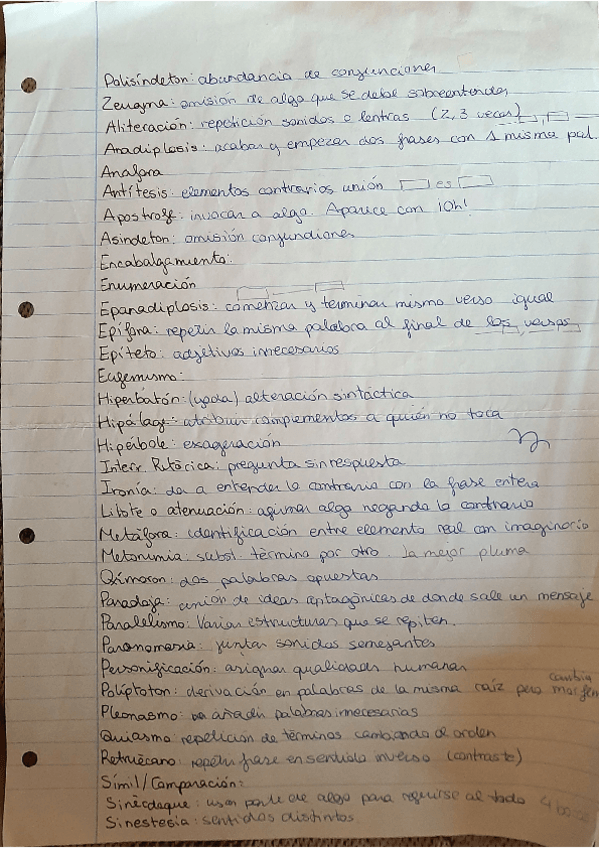 Polisíndeton: abundancia de conjunciones
Zeugma: omisión de algo que se debe sobreentender
Aliteración: repetición sonidos o lentras (2,3 veces)
Anadiplosis: acabar y empezar dos frases con 1 misma pal.
Anáfora
Antítesis: elementos contrarios unión es
Apostrofe: invocar a algo. Aparice con ¡Oh!
Asíndeton: omisión conjundiones
Encabalgamiento:
Enumeración
Epanadiplosis: comenzar y terminar mismo verso igual
Epífora: repetir la misma palabra al final de los versos
Epíteto: adjetivos innecesarios
Eufemismo:
Hiperbatón: (yoda) alteración sintáctica
Hipálage: atribuir complementos a quién no toca
Hipérbole: exageración
Interr. Retórica: pregunta sin respuesta
Ironía: da a entender lo contrario con la frase entera
Litote o atenuación: afirmar algo negando lo contrario
Metáfora: identificación entre elemento real con imaginario
Metonimia: subst. término por otro. La mejor pluma
Oxímoron: dos palabras opuestas
Paradoja: unión de ideas antagónicas de donde sale un mensaje
Paralelismo: Varias estructuras que se repiten.
Paronomasia: juntar sonidos semejantes
Personificación: asignar qualidades humanas
Políptoton: derivación en palabras de la misma raíz pero cambia morfem
Pleonasmo: añadir palabras innecesarias
Quiasmo: repetición de términos cambiando el orden
Retruécano: repetir frase en sentido inverso (contraste)
Símil/Comparación:
Sinécdoque: usar parte de algo para referirse al todo
Sinestesia: sentidos distintos